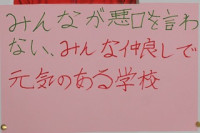 みんなが悪口を言わ
ない、みんな仲良しで
元気のある学校